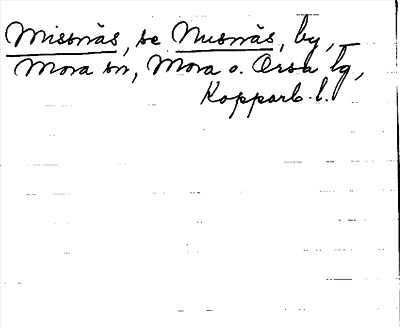 Missnäs, se Nusnäs, by,
Mora sn, Mora o. Orsa tg,
Kopparb. l.